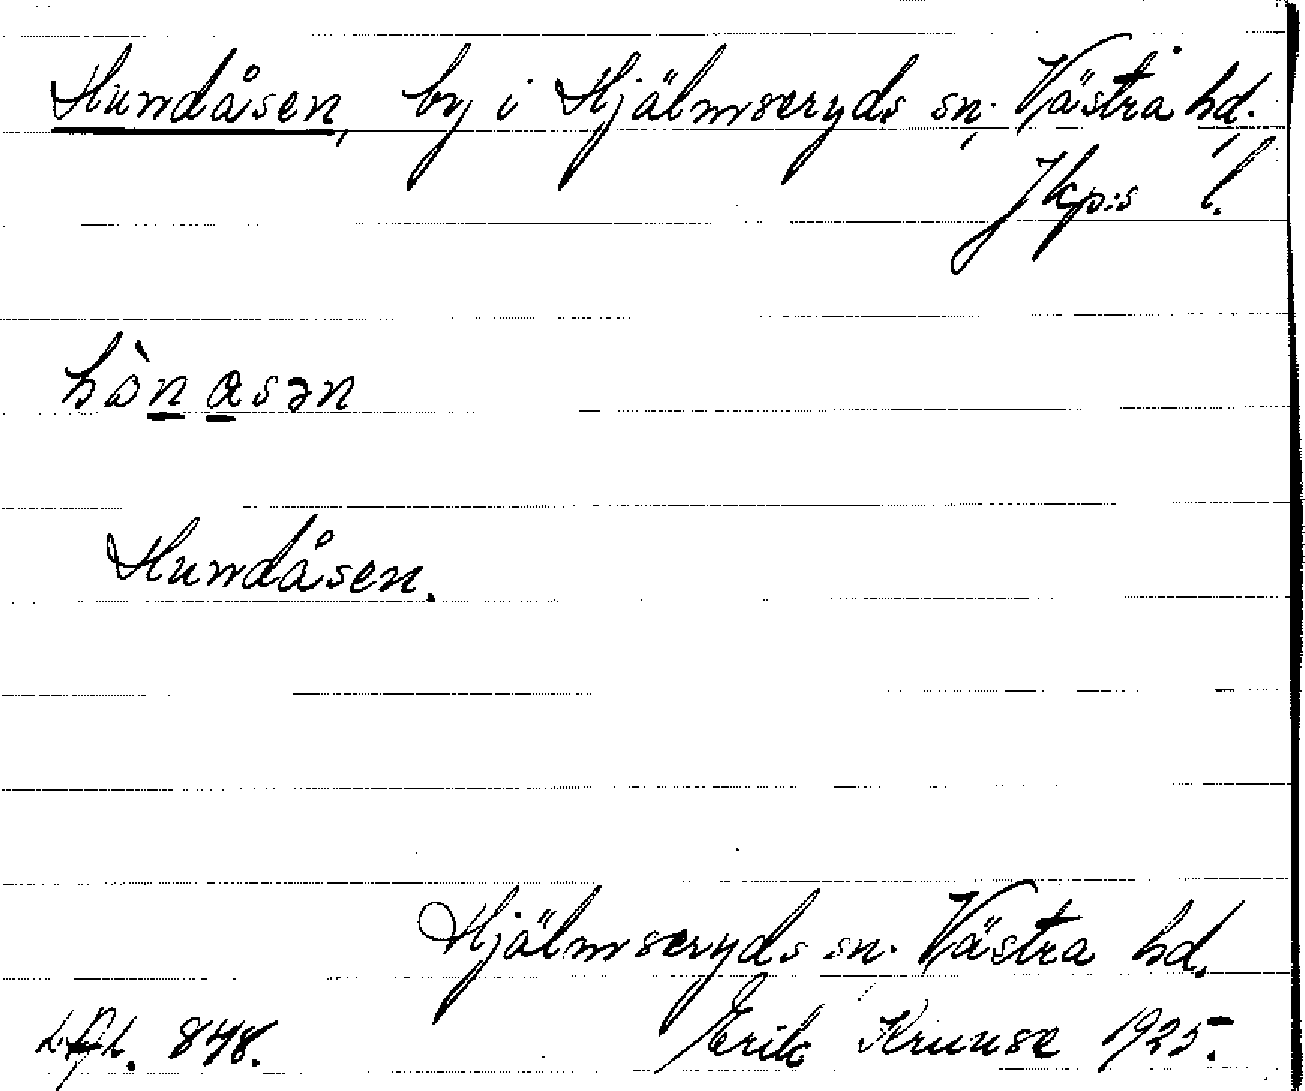 Hundåsen, by i Hjälmseryds sn, Västra hd,
Jkp:s l.
hòn asən
Hundåsen.
Hjälmseryds sn. Västra hd.
848. Erik Kruuse 1925.